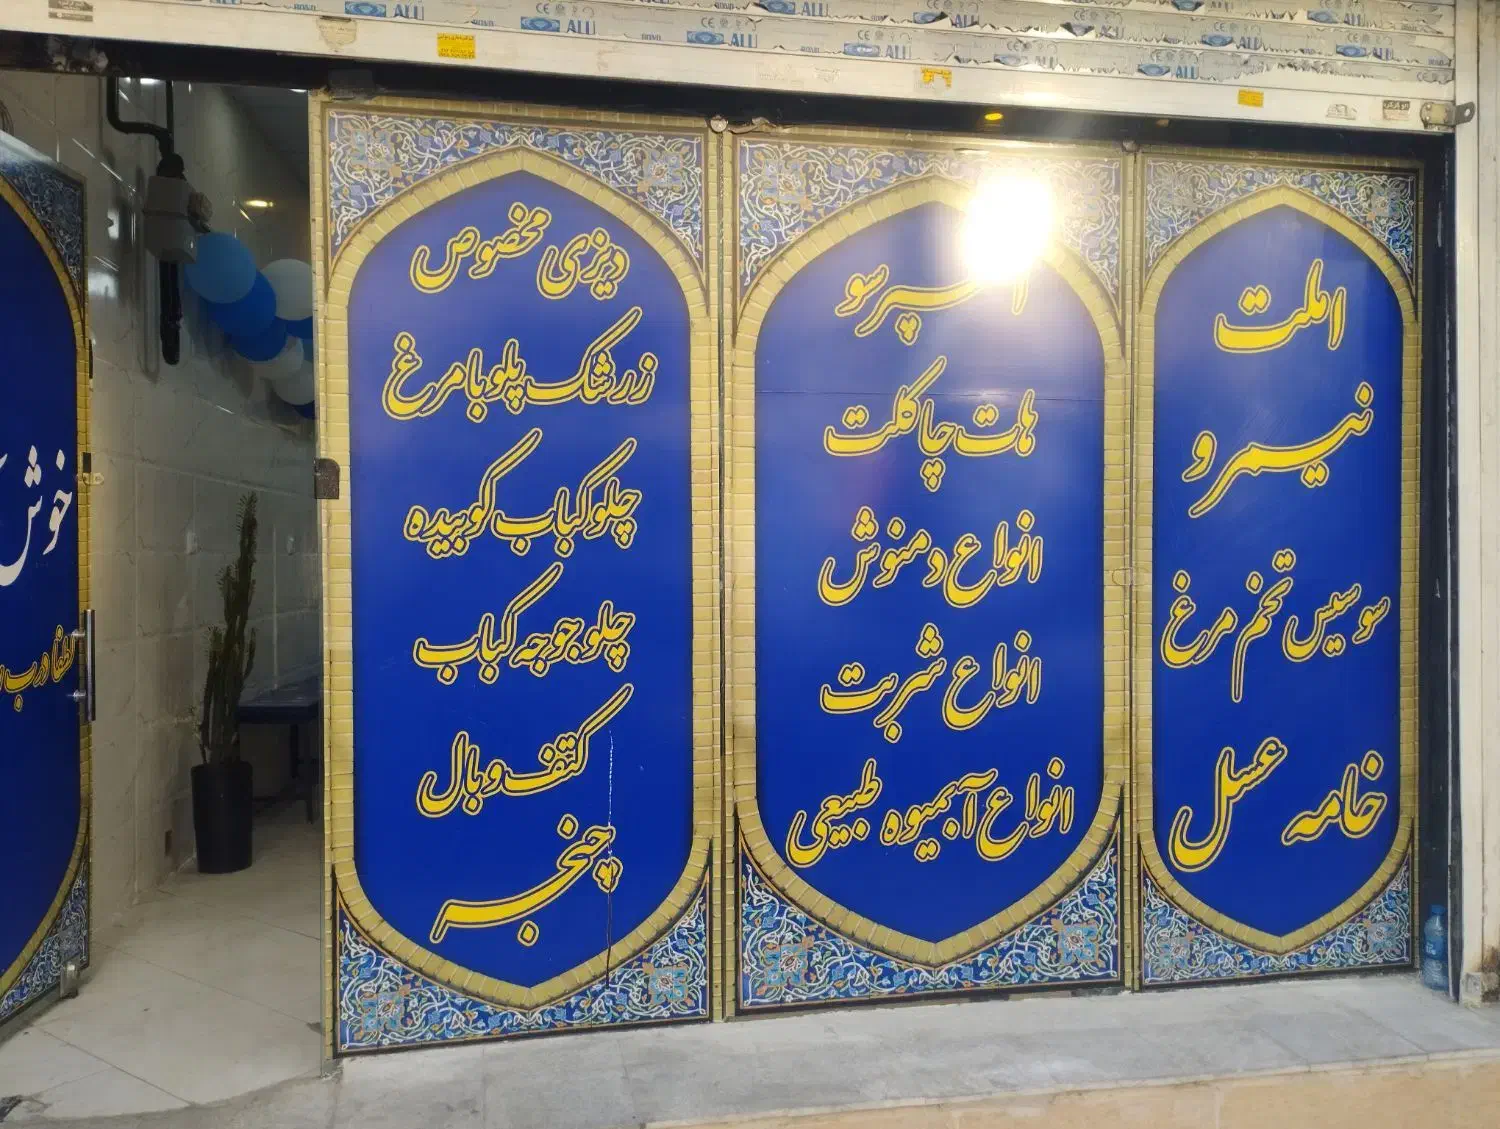 املت
نیمرو
سوسیس تخم مرغ
خامه عسل
اسپرسو
هات چاکلت
انواع دمنوش
انواع شربت
انواع آبمیوه طبیعی
دیزی مخصوص
زرشک پلو با مرغ
چلو کباب کوبیده
چلو جوجه کباب
کتف و بال
پنجر
خوش
لطفا درب
ALU